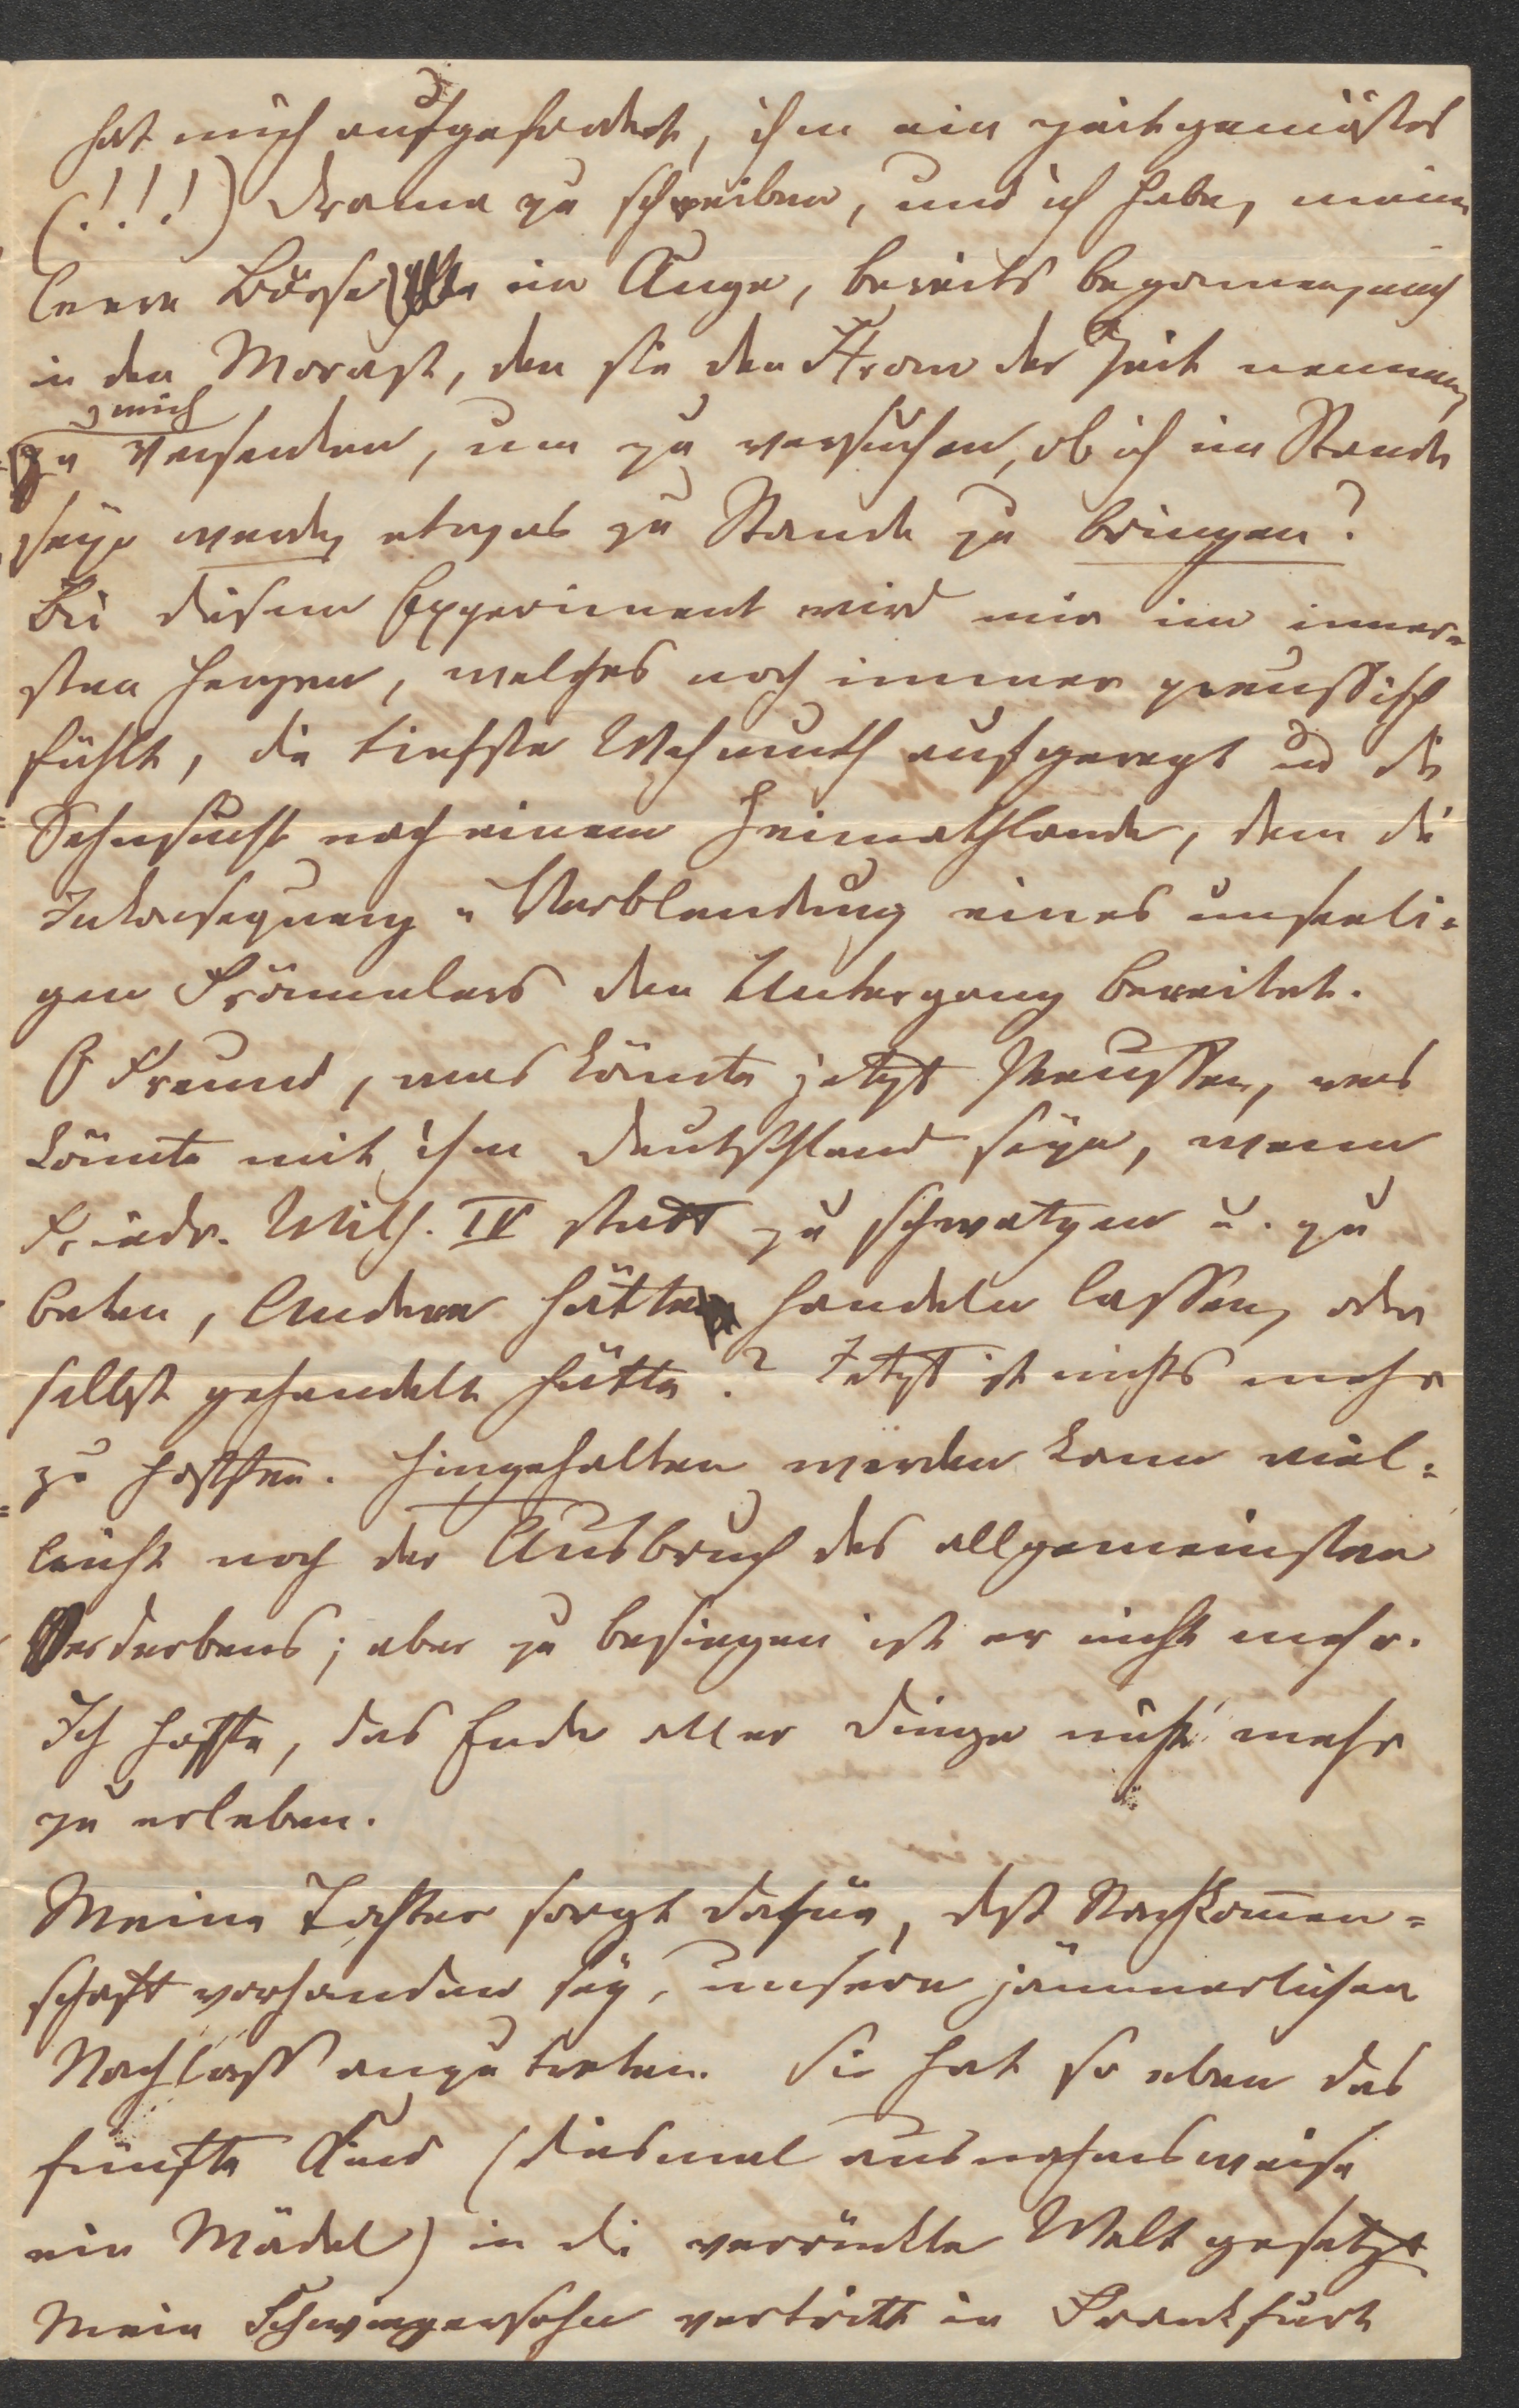 hat mich aufgefordert, ihm ein zeitgemäßes
(!!!) Drama zu schreiben, und ich habe, meine
leere Börse im Auge, bereits begonnen, mich
in den Morast, den sie den Strom der Zeit nennen,
zu versenken, um zu versuchen, ob ich im Stande
seyn werde, etwas zu Stande zu bringen?
Bei diesem Experiment wird mir im inner-
sten Herzen, welches noch immer preussisch
fühlt, die tiefste Wehmuth aufgeregt und die
Sehnsucht nach einem Heimathlande, dem die
Inkonsequenz u Verblendung eines unseeli-
gen Frömmlers den Untergang bereitet.
O Freund, was könnte jetzt Preussen, was
könnte mit ihm Deutschland seyn, wenn
Friedr. Wilh. IV statt zu schwatzen u. zu
beten, Andere hätte handeln lassen, oder
selbst gehandelt hätte? Jetzt ist nichts mehr
zu hoffen. Hingehalten werden kann viel-
leicht noch der Ausbruch des allgemeinsten
Verderbens; aber zu besiegen ist er nicht mehr.
Ich hoffe, das Ende aller Dinge nicht mehr
zu erleben.
Meine Tochter sorgt dafür, daß Nachkommen-
schaft vorhanden sey, unsern jämmerlichen
Nachlass anzutreten. Sie hat so eben das
fünfte Kind (diesmal ausnahmsweise
ein Mädel) in die verrückte Welt gesetzt
Mein Schwiegersohn vertritt in Frankfurt